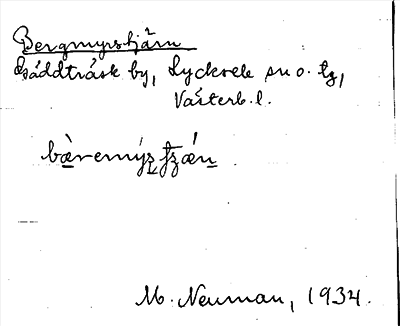 Bergmyrstjärn
Bäddträsk by, Lycksele sn o. tg,
Västerb. l.
M. Neuman, 1934.